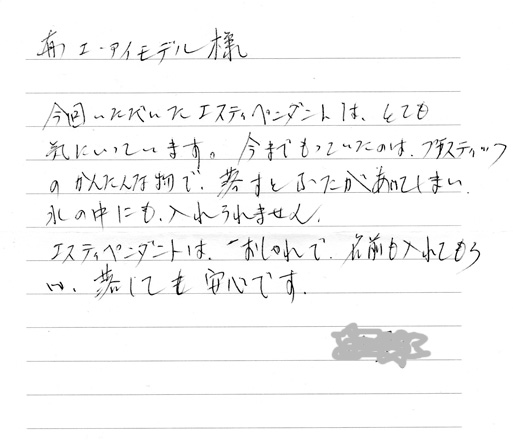 ㈲エーアイモデル様
今回いただいたエスティペンダントは、とても
気にいっています。今までもっていたのは、プラスティック
のかんたんな物で、落すとふたがあいてしまい、
水の中にも、入れられません。
エスティペンダントは、おしゃれで、名前も入れてもら
い、落しても安心です。